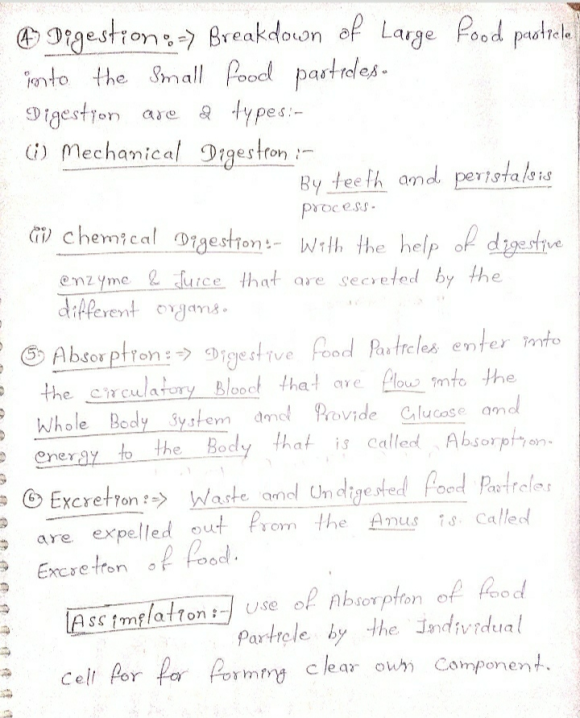 ④ Digestion :⇒ Breakdown of Large food particle
into the small food particles.
Digestion are 2 types:-
(i) Mechanical Digestion :-
By teeth and peristalsis
process.
(ii) Chemical Digestion:- With the help of digestive
enzyme & Juice that are secreted by the
different organs.
⑤ Absorption:⇒ Digestive food Particles enter into
the circulatory Blood that are flow into the
Whole Body system and Provide Glucose and
energy to the Body that is called Absorption.
⑥ Excretion:⇒ Waste and Undigested food Particles
are expelled out from the Anus is called
Excretion of food.
Assimilation:- Use of Absorption of food
Particle by the Individual
cell for for forming clear own Component.